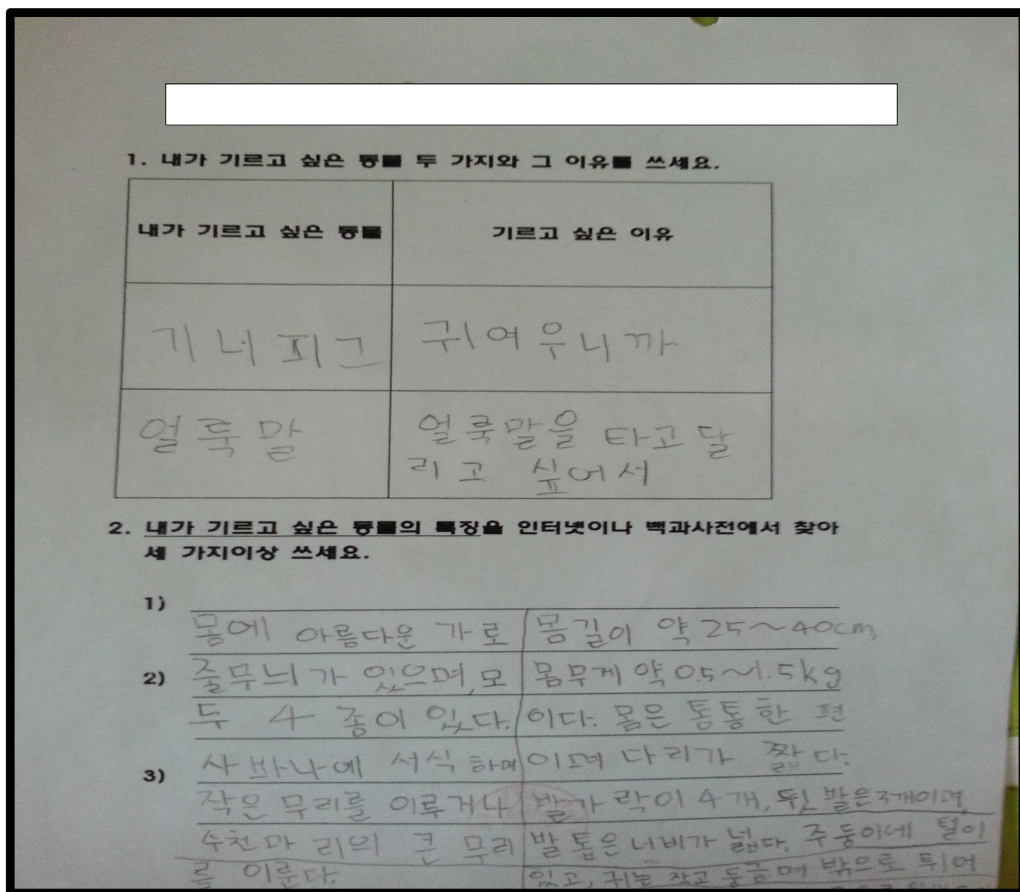 1. 내가 기르고 싶은 동물 두 가지와 그 이유를 쓰세요.
내가 기르고 싶은 동물
기르고 싶은 이유
기니피그
귀여우니까
얼룩말
얼룩말을 타고 달
리고 싶어서
2. 내가 기르고 싶은 동물의 특징을 인터넷이나 백과사전에서 찾아
세 가지이상 쓰세요.
1)
2)
3)
몸에 아름다운 가로
줄무늬가 있으며, 모
두 4 종이 있다.
사바나에 서식하며
작은 무리를 이루거나
수천마리의 큰 무리
를 이룬다.
몸길이 약 25~40cm,
몸무게 약 0.5~1.5kg
이다. 몸은 통통한 편
이며 다리가 짧다.
발가락이 4개, 뒷발은 3개이며,
발톱은 너비가 넓다. 주둥이에 털이
있고, 귀는 작고 둥글며 밖으로 튀어